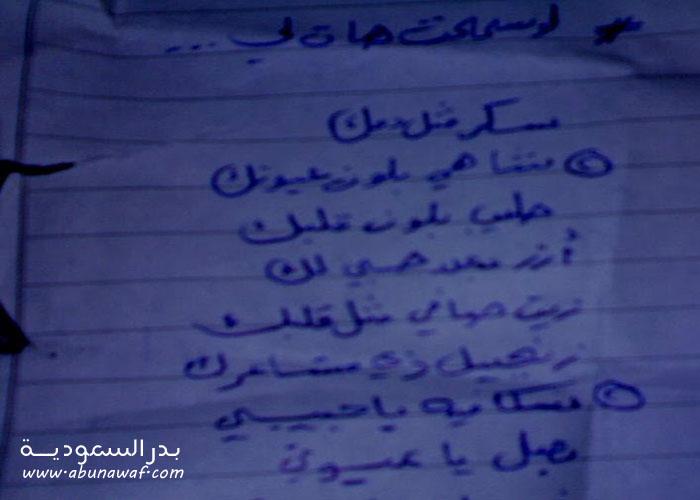 # لو سمحت هات لي ...
سكر مثل دمك
شاهي بلون عيونك
حليب بلون قلبك
أرز بعدد حبي لك
زيت صافي مثل قلبك
زنجبيل زي مشاعرك
يا حبيبي
بصل يا عيوني
بدر السعودية
www.abunawaf.com